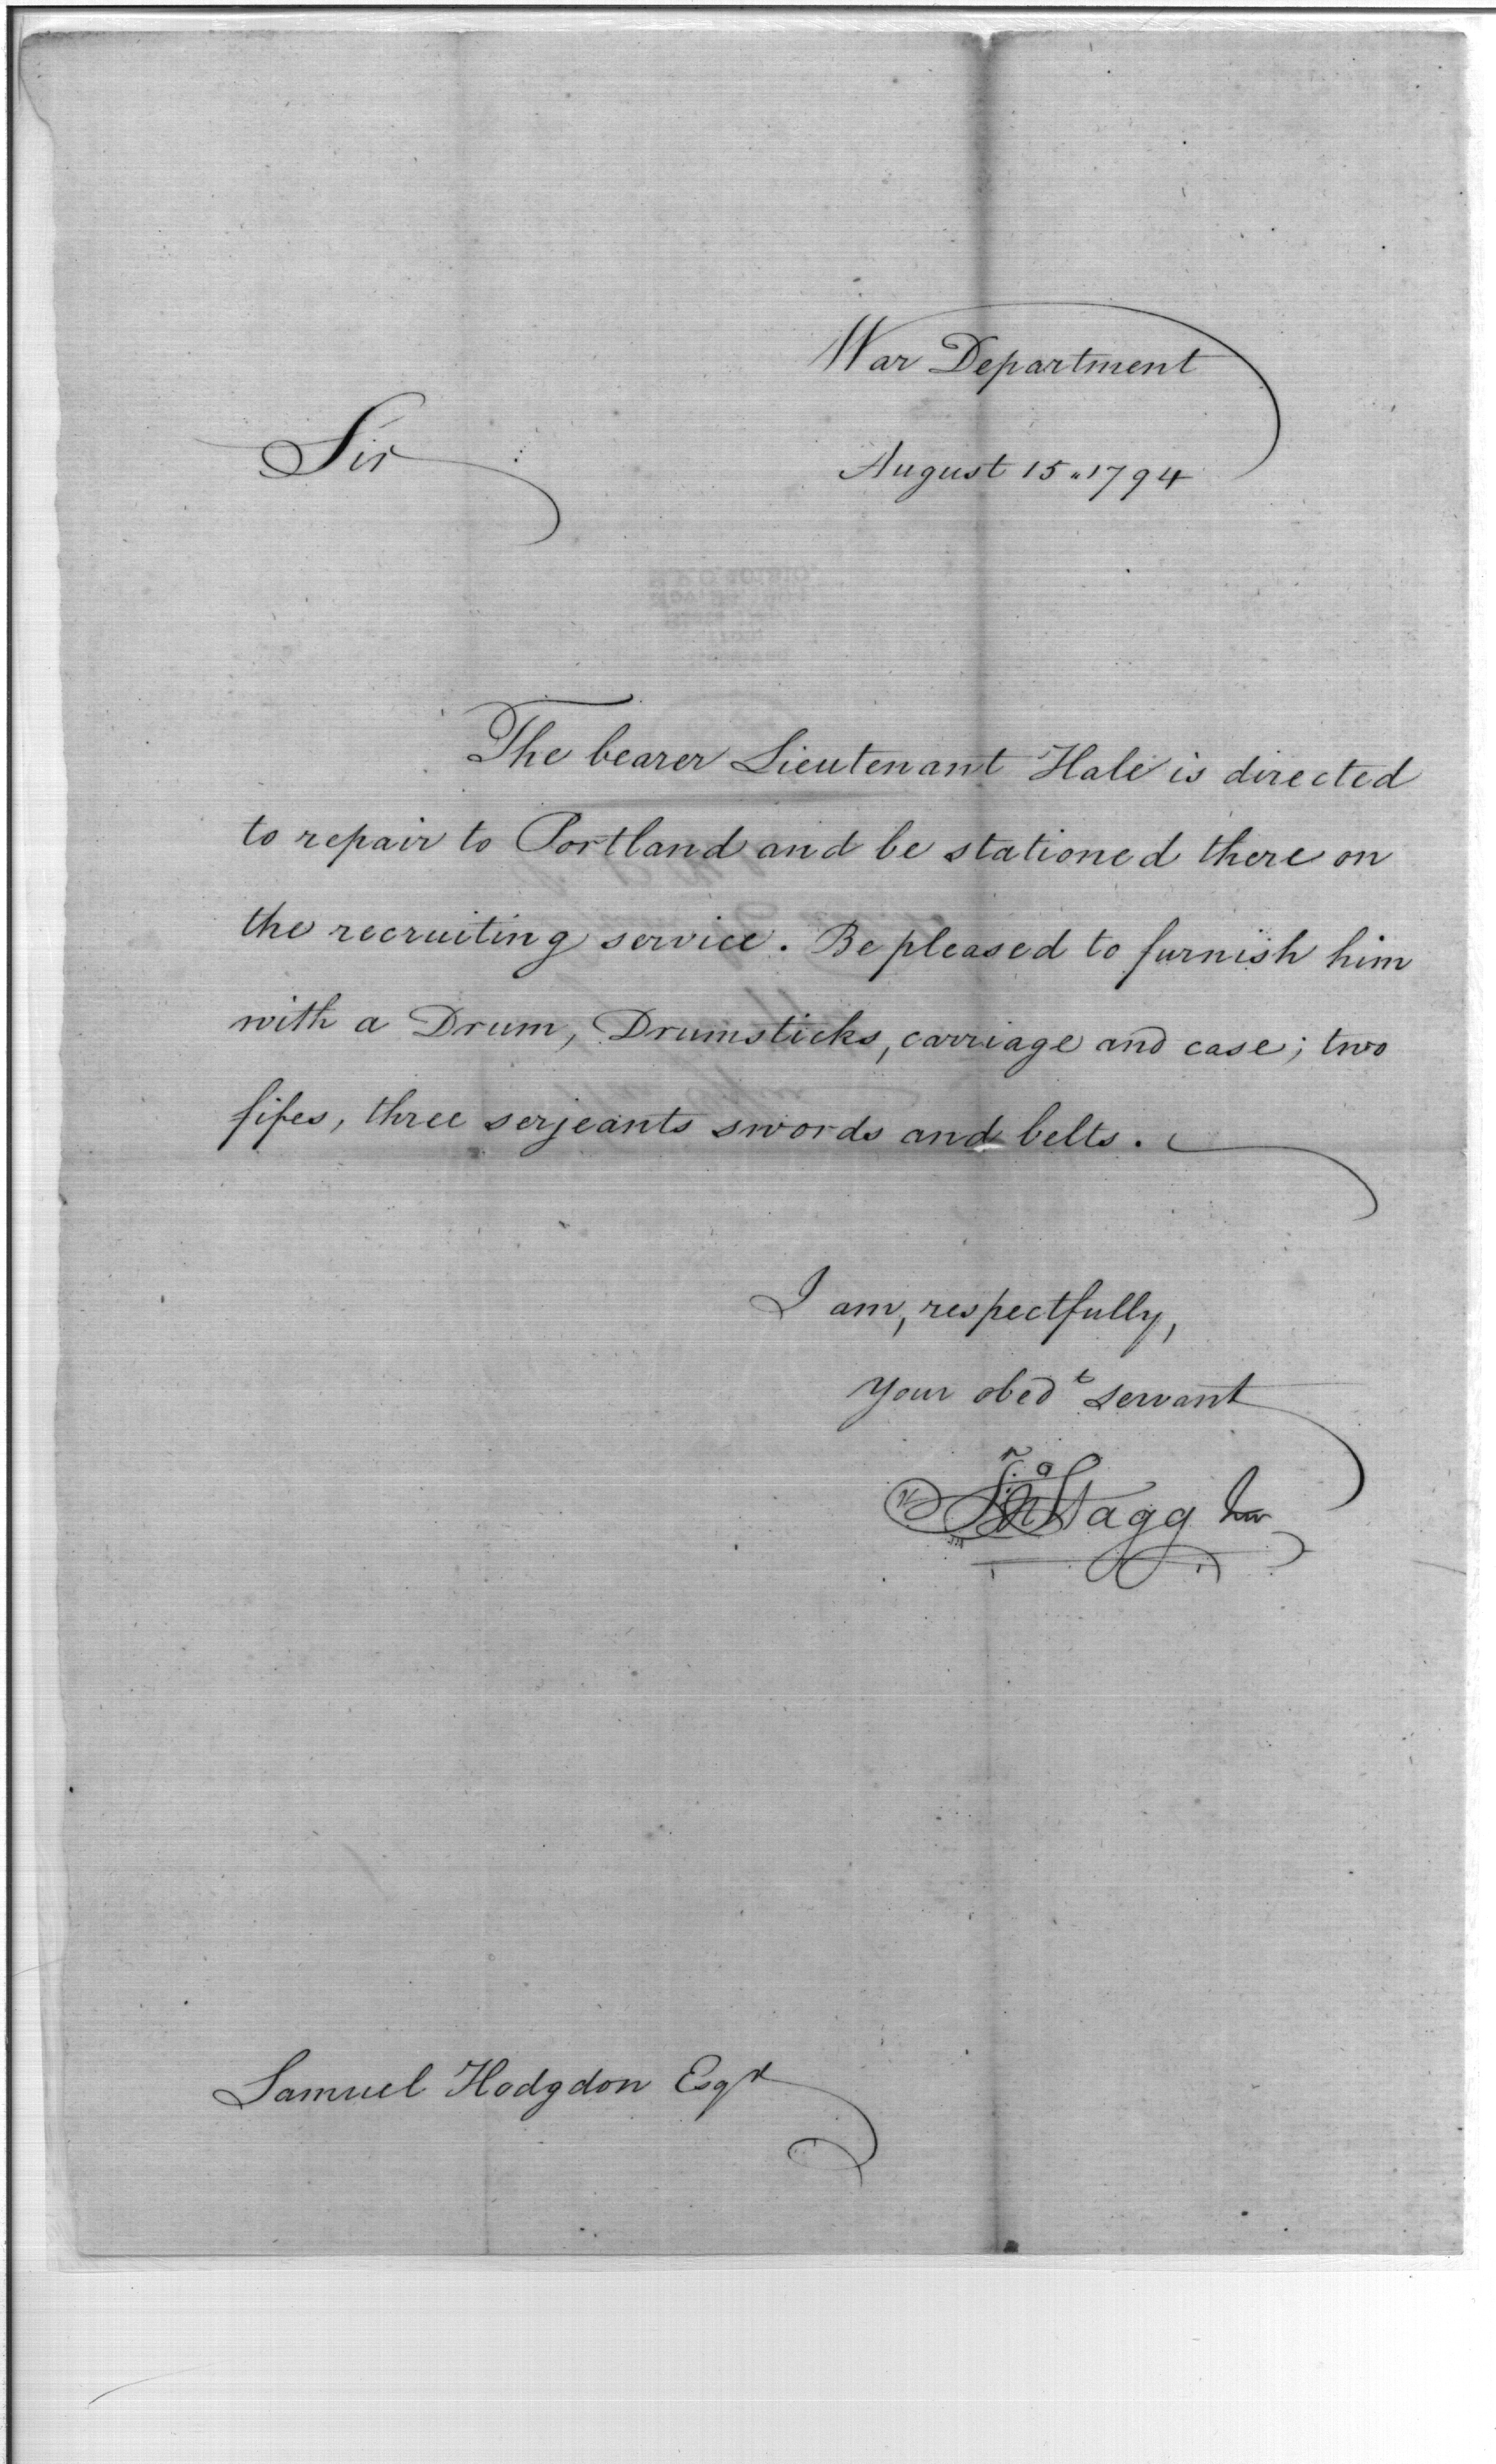 War Department
Sir
August 15 " 1794
The bearer Lieutenant Hale is directed
to repair to Portland and be stationed there on
the recruiting service. Be pleased to furnish him
with a Drum, Drumsticks, carriage and case; two
fifes, three serjeants swords and belts.
I am, respectfully,
your obedt servant
Jno Stagg Junr
Samuel Hodgdon Esqr